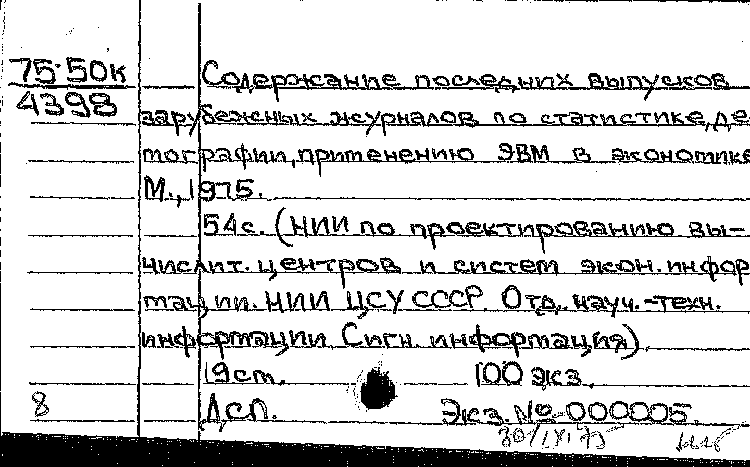 75-50к
4398
Содержание последних выпусков
зарубежных журналов по статистике, де-
мографии, применению ЭВМ в экономике
М., 1975.
54с. (НИИ по проектированию вы-
числит. центров и систем экон. инфор
мации. НИИ ЦСУ СССР. Отд. науч.-техн.
информации Сигн. информация).
19см. 100 экз.
8 Дсп. Экз. № 000005.
30/IX 75